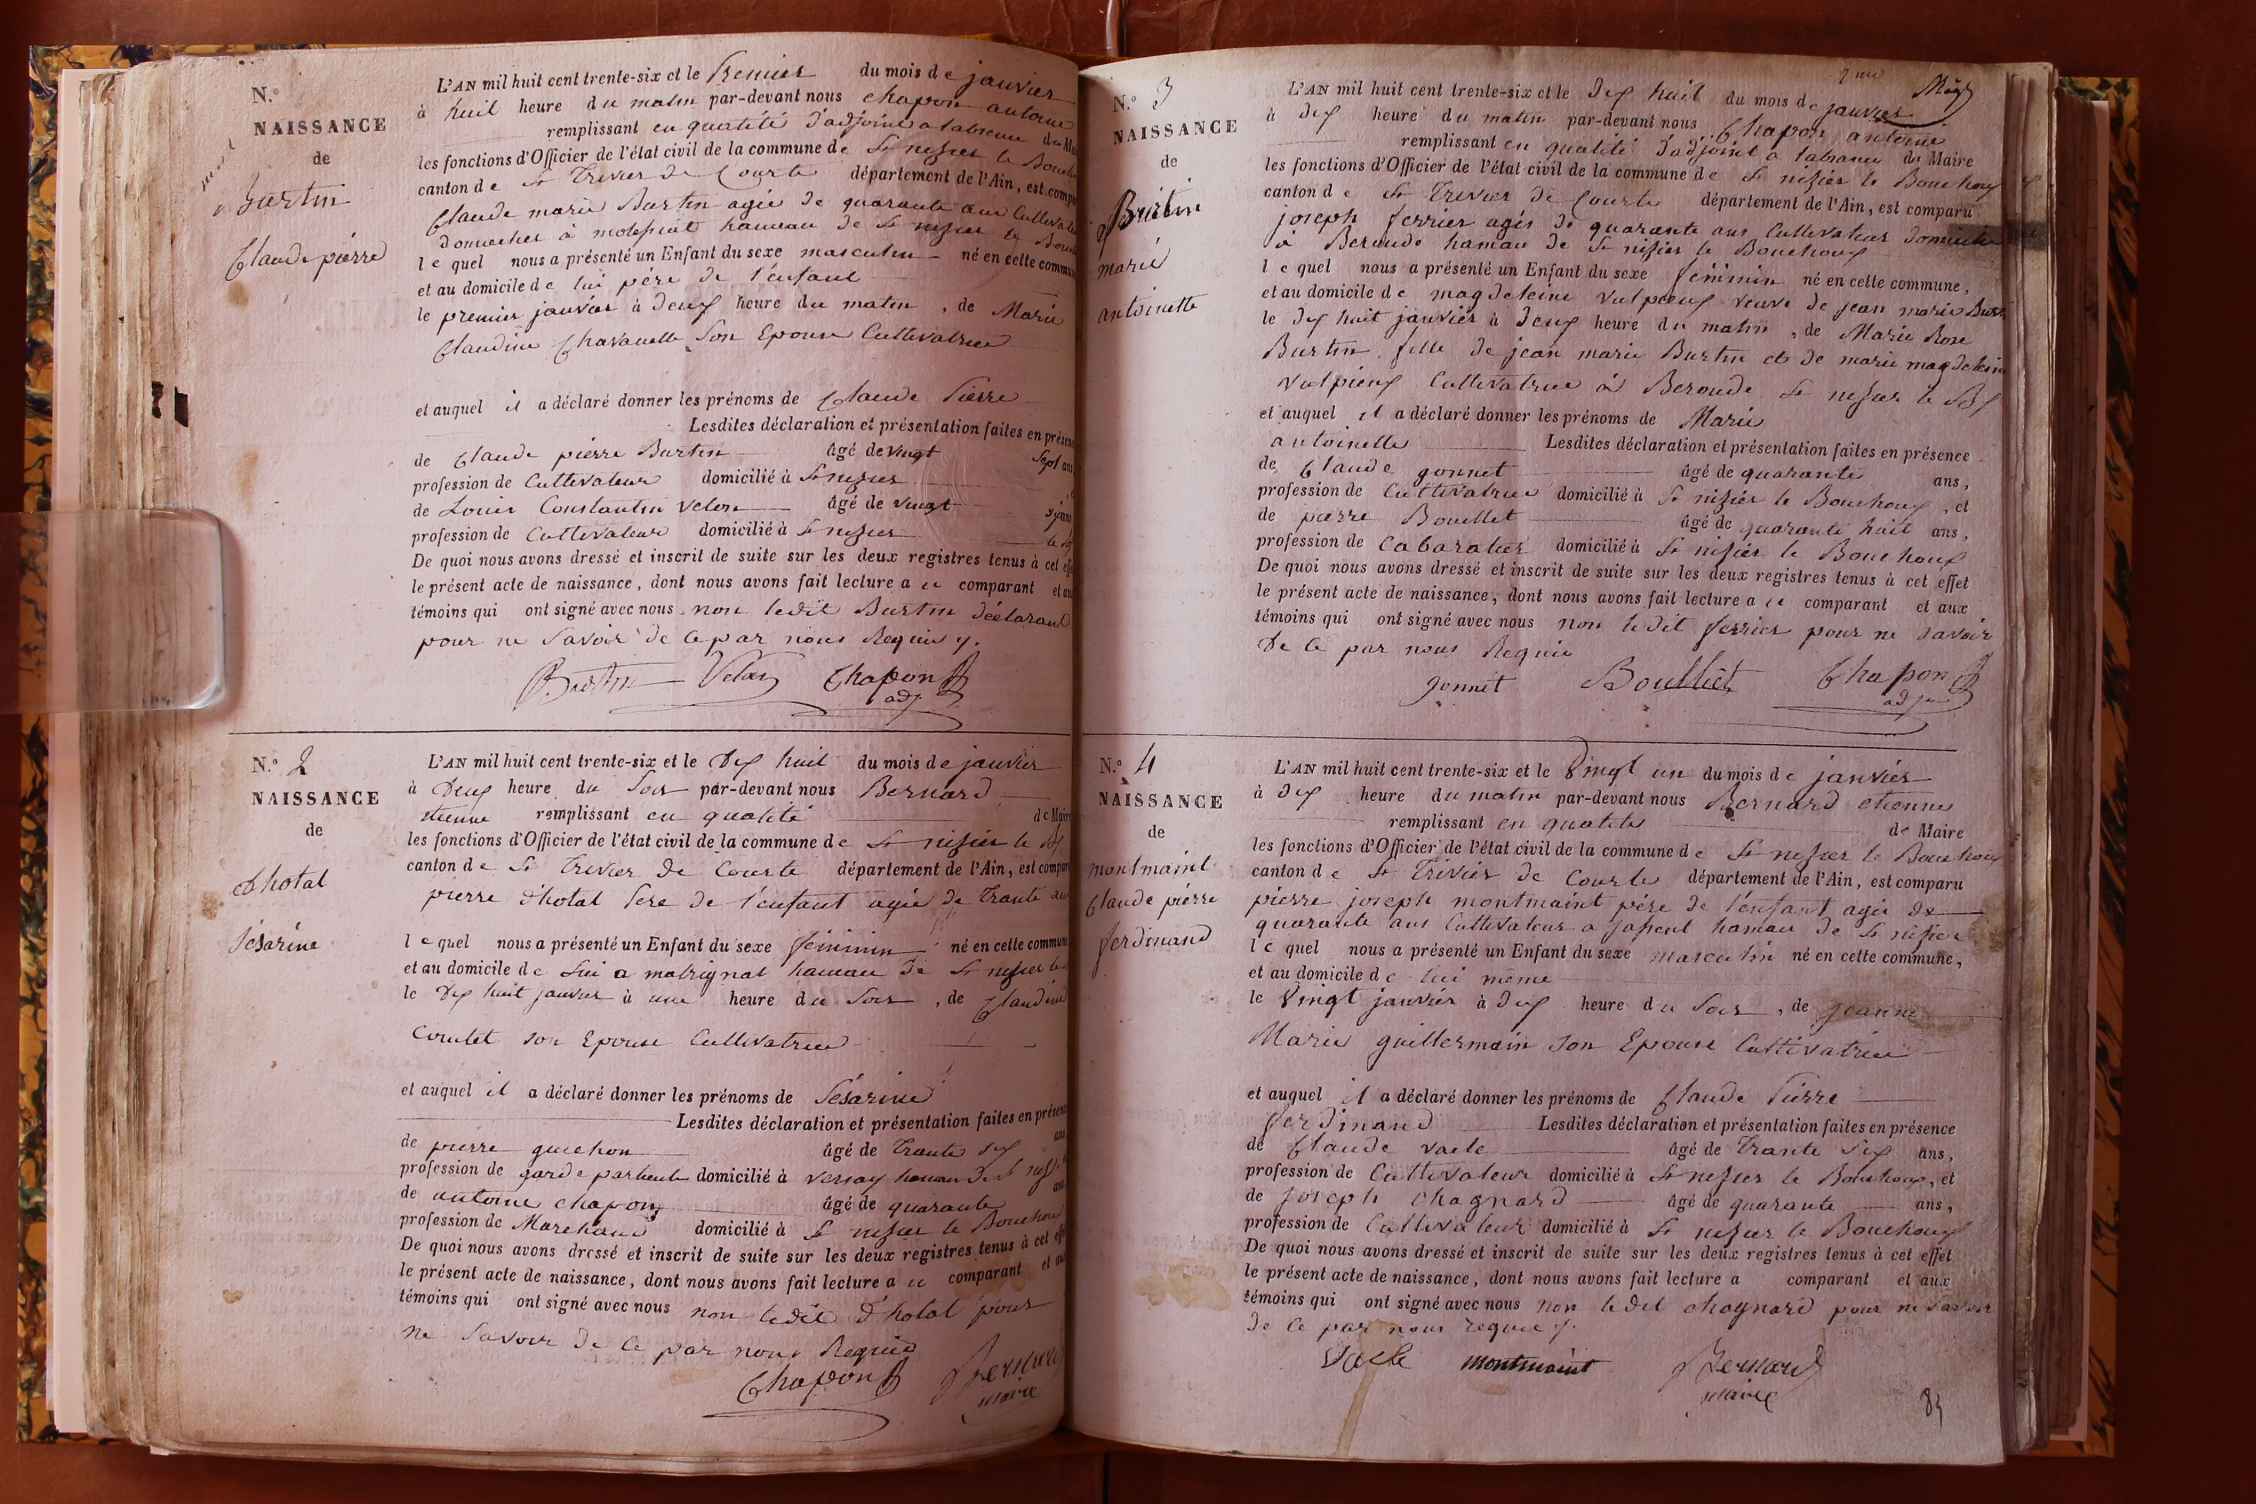 N.°
NAISSANCE
de
Burtin
Claude pierre
L'AN mil huit cent trente-six et le Premier du mois de janvier
à huit heure du matin par-devant nous chapon antoine
remplissant en qualité d'adjoint a l'absence du
les fonctions d'Officier de l'état civil de la commune de St nizier le
canton de St Trivier de Courte département de l'Ain, est
Claude marie Burtin agée de quarante ans
à hameau de St nizier le
lequel nous a présenté un Enfant du sexe masculin né en cette
et au domicile de lui père de l'enfant
le premier janvier à deux heure du matin, de Marie
Claudine Chavanelle Son Epouse Cultivatrice
et auquel il a déclaré donner les prénoms de Claude Pierre
Lesdites déclaration et présentation faites en
de Claude pierre Burtin âgé de vingt sept
profession de Cultivateur domicilié à St nizier
de Louis Constantin Velon âgé de vingt
profession de Cultivateur domicilié à St nizier
De quoi nous avons dressé et inscrit de suite sur les deux registres tenus à cet
le présent acte de naissance, dont nous avons fait lecture a ce comparant et
témoins qui ont signé avec nous non ledit Burtin déclarant
pour ne Savoir de ce par nous Requis
Burtin Velon Chapon
adj
N.° 2
NAISSANCE
de
Dhotal
Sésarine
L'AN mil huit cent trente-six et le Dix huit du mois de janvier
à Deux heure du Soir par-devant nous Bernard
étienne remplissant en qualité de
les fonctions d'Officier de l'état civil de la commune de St nizier le
canton de St Trivier de Courte département de l'Ain, est
pierre d'hotal Père de l'enfant agée de Trante
lequel nous a présenté un Enfant du sexe féminin né en cette
et au domicile de Lui a hameau de St nizier
le Dix huit janvier à une heure du Soir, de Claudine
Comtet son Epouse Cultivatrice
et auquel il a déclaré donner les prénoms de Sésarine
Lesdites déclaration et présentation faites en
de pierre guichon âgé de Trante
profession de garde domicilié à
de antoine chapon âgé de quarante
profession de Marchand domicilié à St nizier le
De quoi nous avons dressé et inscrit de suite sur les deux registres tenus à cet
le présent acte de naissance, dont nous avons fait lecture a ce comparant et
témoins qui ont signé avec nous non ledit d'hotal pour
ne Savoir de ce par nous Requis
Chapon Bernard
maire
N.° 3
NAISSANCE
de
Burtin
marie
antoinette
L'AN mil huit cent trente-six et le Dix huit du mois de janvier
à Dix heure du matin par-devant nous Chapon antoine
remplissant en qualité d'adjoint a l'absence du Maire
les fonctions d'Officier de l'état civil de la commune de St nizier le Bouchoux
canton de St Trivier de Courte département de l'Ain, est comparu
joseph ferrier agée de quarante ans Cultivateur
à Beroude hamau de St nizier le Bouchoux
lequel nous a présenté un Enfant du sexe féminin né en cette commune,
et au domicile de magdeleine vulpieux veuve de jean marie
le Dix huit janvier à Deux heure du matin, de Marie Rose
Burtin fille de jean marie Burtin et de marie
vulpieux Cultivatrice à Beroude St nizier le
et auquel il a déclaré donner les prénoms de Marie
antoinette Lesdites déclaration et présentation faites en présence
de Claude gonnet âgé de quarante ans,
profession de domicilié à St nizier le Bouchoux, et
de pierre Bouillet âgé de quarante huit ans,
profession de cabaratier domicilié à St nizier le Bouchoux
De quoi nous avons dressé et inscrit de suite sur les deux registres tenus à cet effet
le présent acte de naissance, dont nous avons fait lecture a ce comparant et aux
témoins qui ont signé avec nous non ledit ferrier pour ne savoir
De ce par nous Requis
gonnet Boulliet Chapon
N.° 4
NAISSANCE
de
montmaint
Claude pierre
ferdinand
L'AN mil huit cent trente-six et le Vingt un du mois de janvier
à Dix heure du matin par-devant nous Bernard etienne
remplissant en qualité de Maire
les fonctions d'Officier de l'état civil de la commune de St nizier le Bouchoux
canton de St Trivier de Courte département de l'Ain, est comparu
pierre joseph montmaint père de l'enfant agée de
quarante ans Cultivateur a hamau de St nizier
lequel nous a présenté un Enfant du sexe masculin né en cette commune,
et au domicile de lui même
le Vingt janvier à Dix heure du Soir, de jeanne
Marie guillermain son Epouse Cultivatrice
et auquel il a déclaré donner les prénoms de Claude Pierre
ferdinand Lesdites déclaration et présentation faites en présence
de Claude âgé de Trante Six ans,
profession de Cultivateur domicilié à St nizier le Bouchoux, et
de joseph chagnard âgé de quarante ans,
profession de Cultivateur domicilié à St nizier le Bouchoux
De quoi nous avons dressé et inscrit de suite sur les deux registres tenus à cet effet
le présent acte de naissance, dont nous avons fait lecture a comparant et aux
témoins qui ont signé avec nous non ledit chagnard pour ne savoir
de ce par nous requis
montmaint Bernard
maire